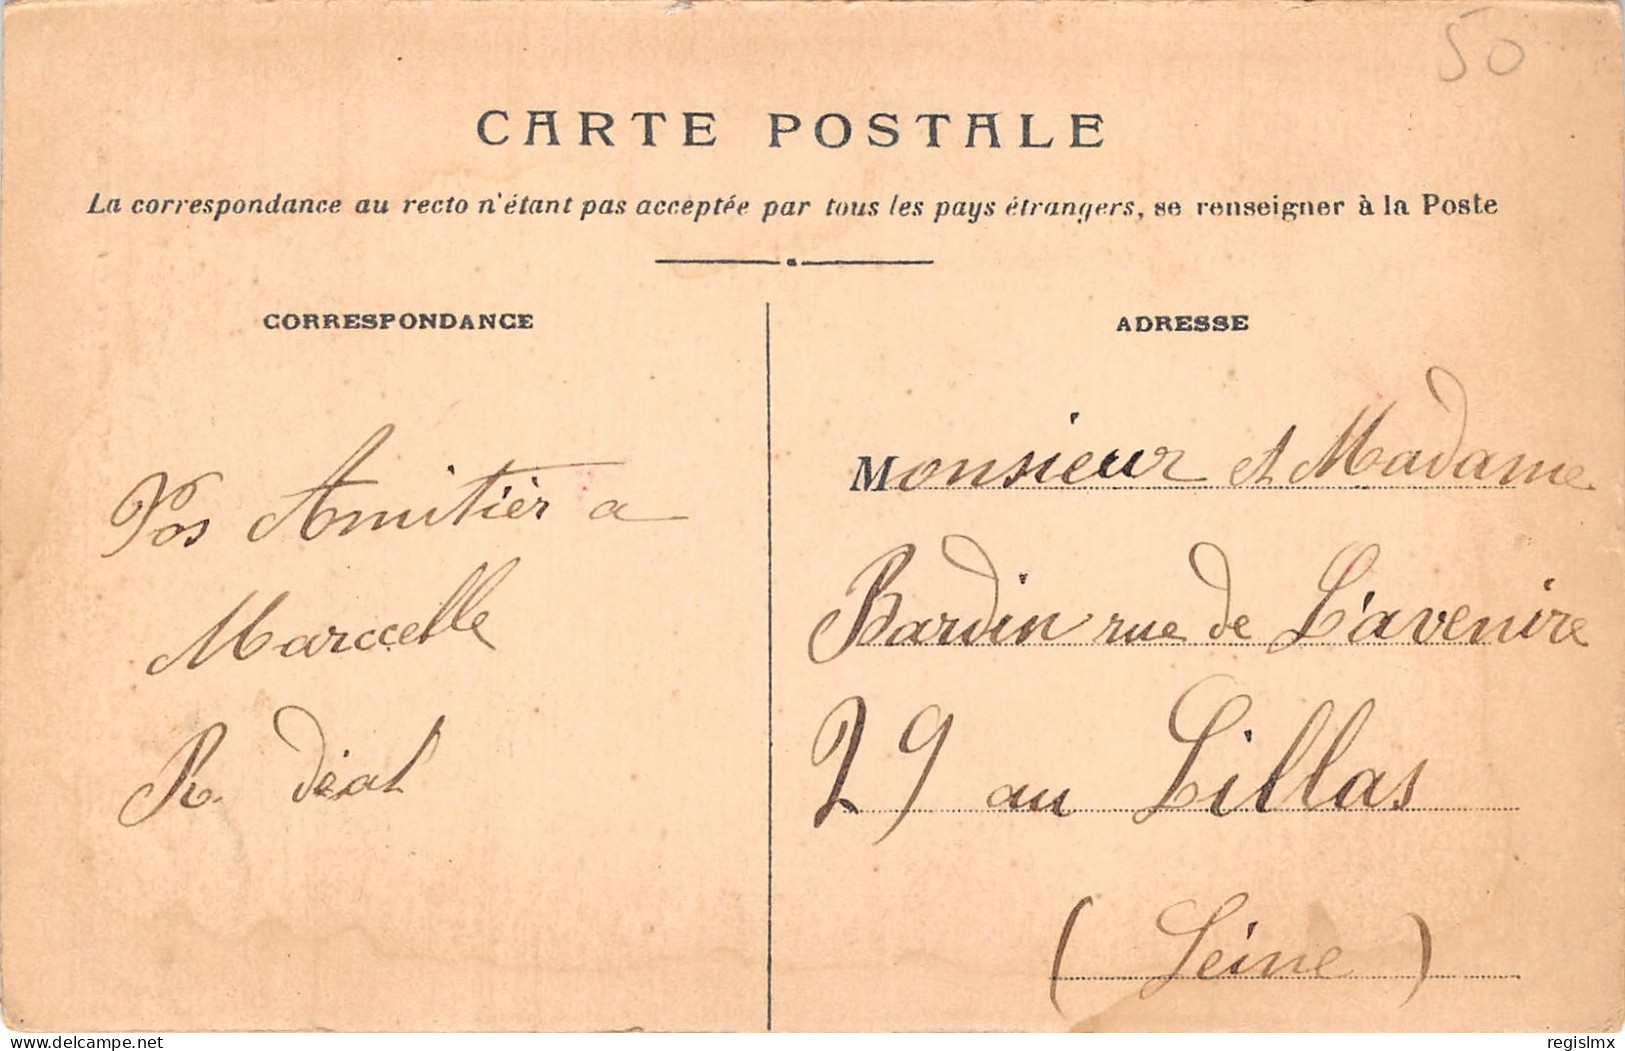 50
CARTE POSTALE
La correspondance au recto n'étant pas acceptée par tous les pays étrangers, se renseigner à la Poste
CORRESPONDANCE
Vos Amitièr a
Marccelle
R. déat
ADRESSE
Monsieur et Madame
Bardin rue de L'avenire
29 au Lillas
(Seine)
delcampe.net
regislmx